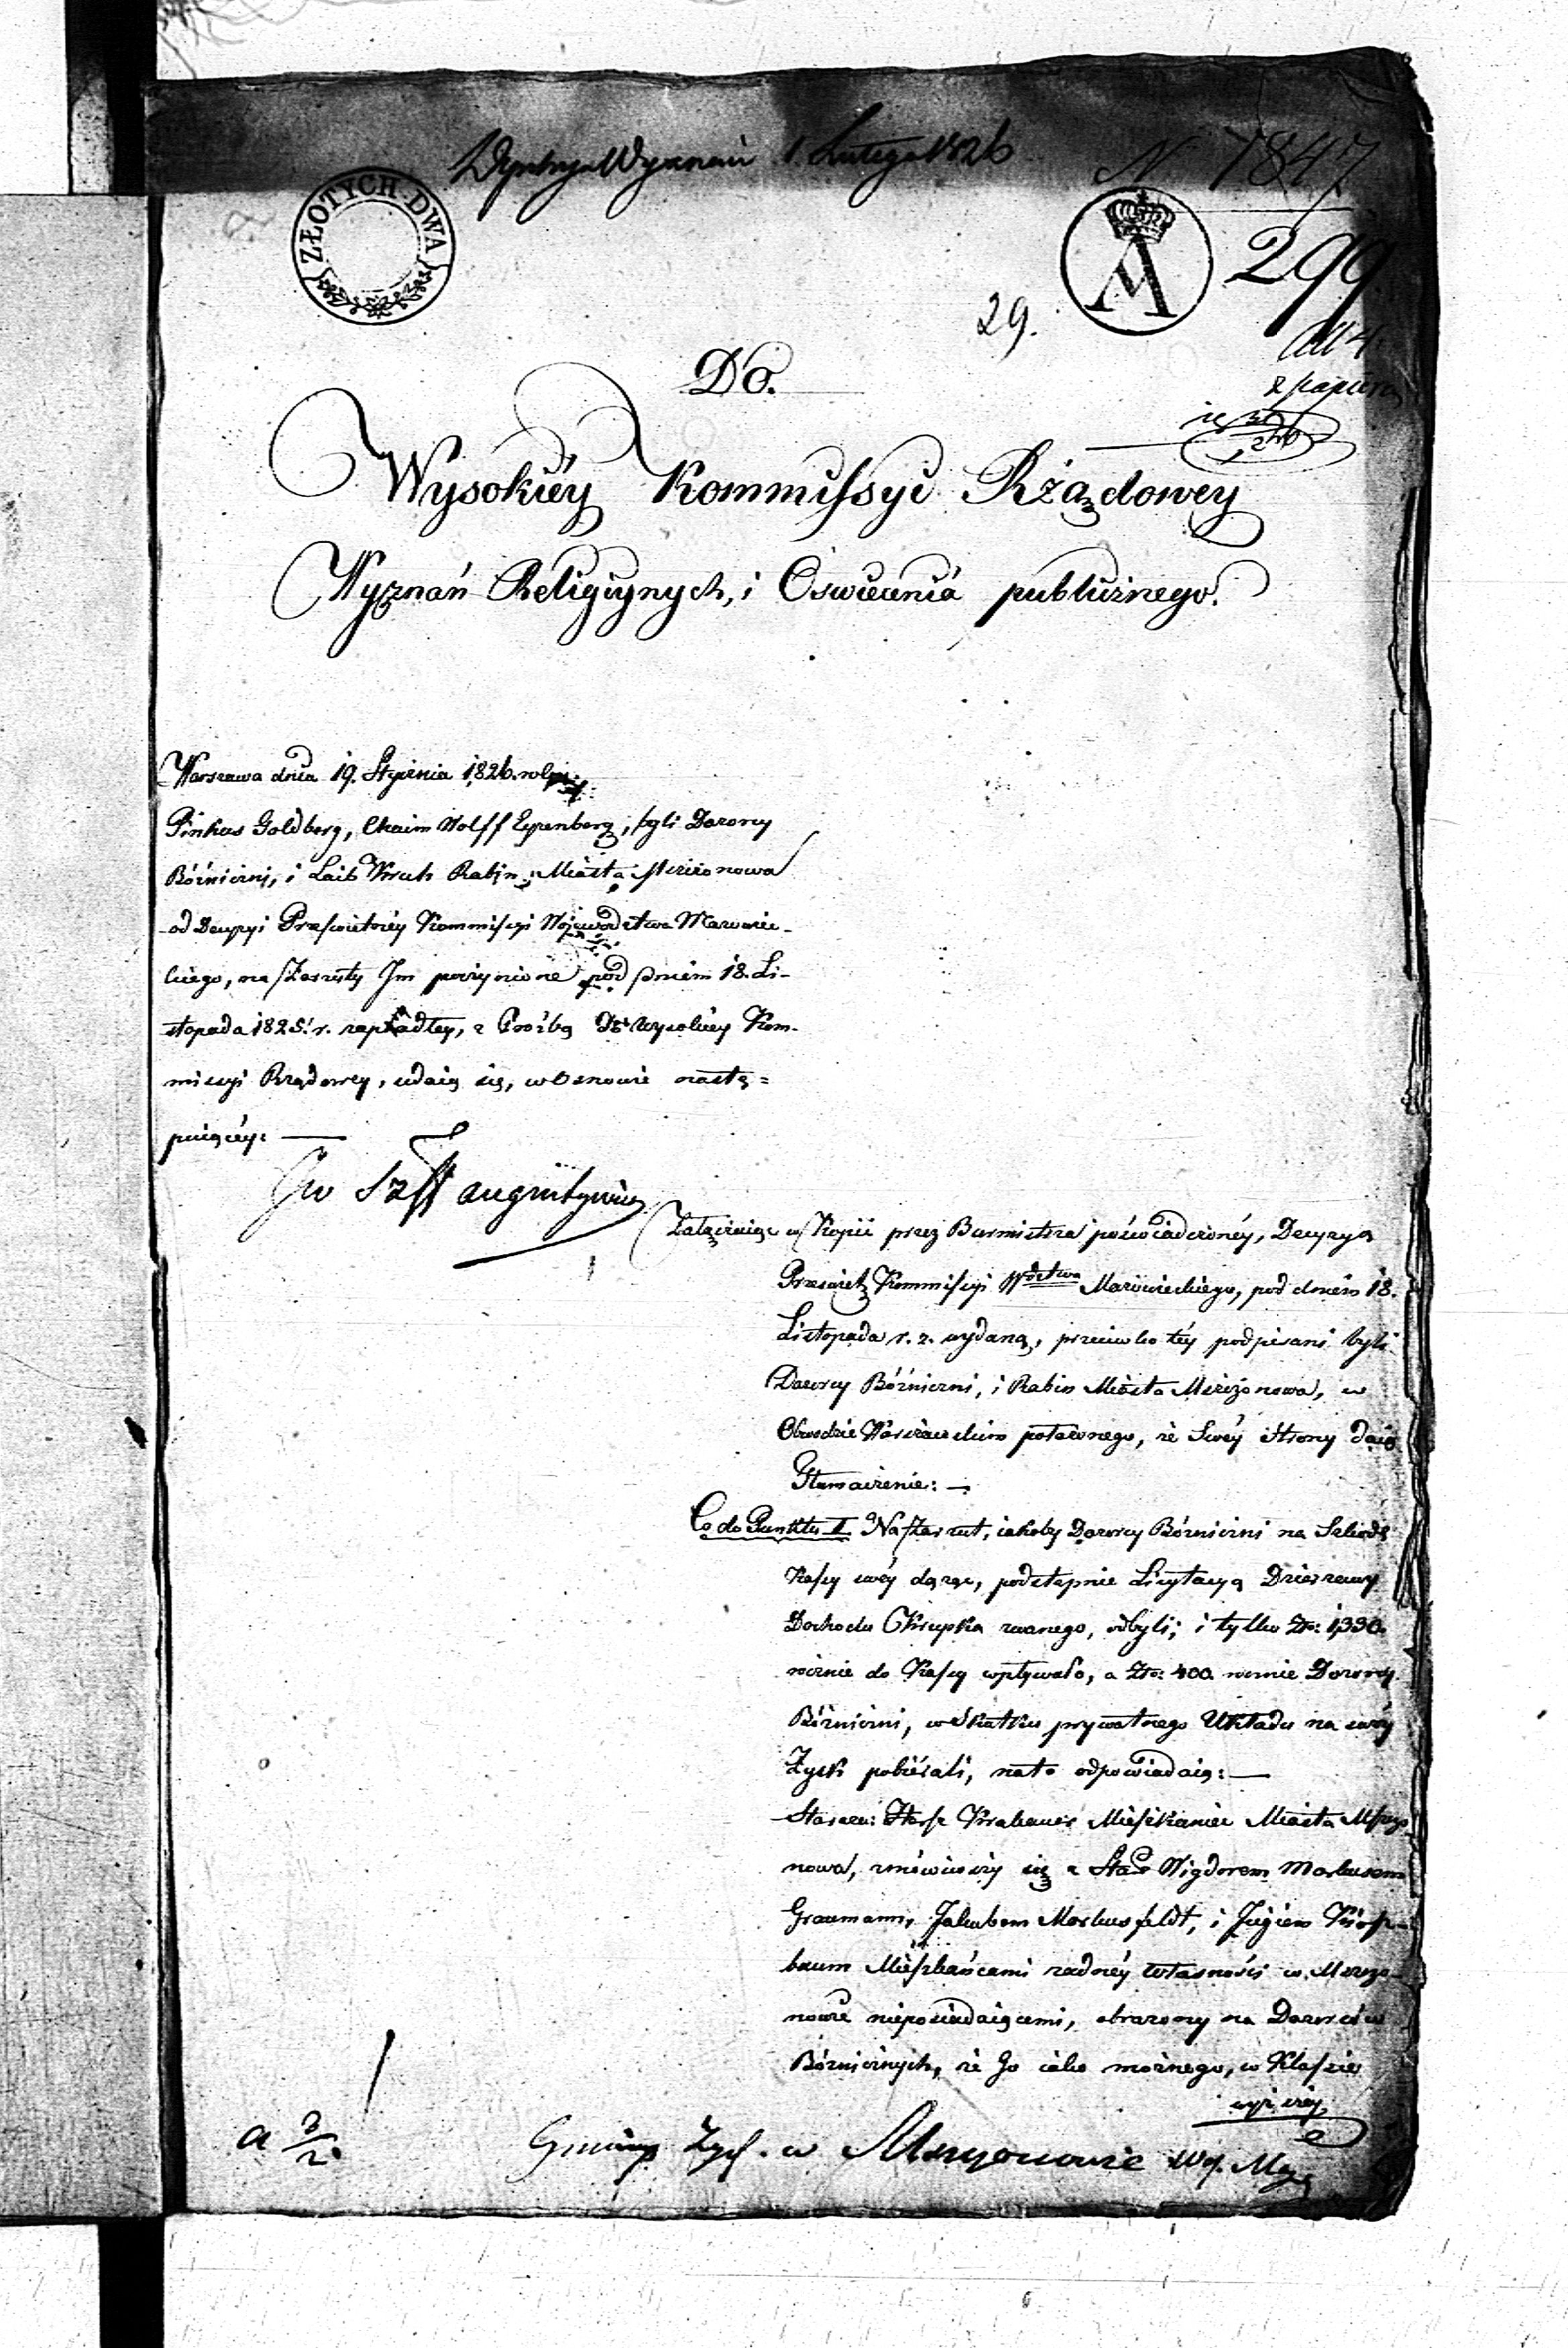 Wyznań 1 Lutego 1826
N 7847
ZŁOTYCH DWA
299
29.
Do.
Wysokiéy Kommissyi Rządowey
Wyznań Religiynych, i Oswiecenia publicznego.
Warszawa dnia 19. Stycznia 1826. roku
Pinkus Goldberg, Chaim Wolff Eyzenberg, byli Dozorcy
Bóźniczni, i Laib Rabin Miasta Mszczonowa
od Decyzyi Prześwietnéy Kommissyi Województwa Mazowiec-
kiego, na Zarzuty Im poczynione pod dniem 18. Li-
stopada 1825. r. zapadłey, z Proźbą Do Wysokiéy Kom-
missyi Rządowey, udaią się, w Osnowie nastę=
puiącéy: —
Załączaiąc w Kopii przez Burmistrza poświadczonéy, Decyzyą
Prześwietn Kommissyi Wdztwa Mazowieckiego, pod dniem 18.
Listopada r. z. wydaną, przeciwko téy podpisani byli
Dozorcy Bóżniczni, i Rabin Miasta Mszczonowa, w
Obwodzie Warszawskim położonego, ze Swéy Strony daią
Tłumaczenie: —
Co do Punktu I. Na Zarzut, iakoby Dozorcy Bóżniczni na Szkodę
Kassy swéy dążąc, podstępnie Licytacyą Dzierzawy
Dochodu Krupka zwanego, odbyli; i tylko Zło: 1,330.
rocznie do Kassy wpływało, a Zło: 400. rocznie Dozorcy
Bóżniczni, w Skutku prywatnego Układu na swóy
Zysk pobiérali, na to odpowiadaią: —
Starozn: Mieszkaniec Miasta Mszczo-
nowa, zmówiwszy się z Wigdorem Markusem
Graumann, Jakubem Markusfeldt, i
baum Mieszkańcami zadnéy własności w Mszczo-
nowie nieposiadaiącemi, obrażony na Dozorców
Bóżnicznych, że Go iako możnego, w Klassie
wyższéy
a 3/2
Gminy Żyd. w Mszczonowie Woj. Maz